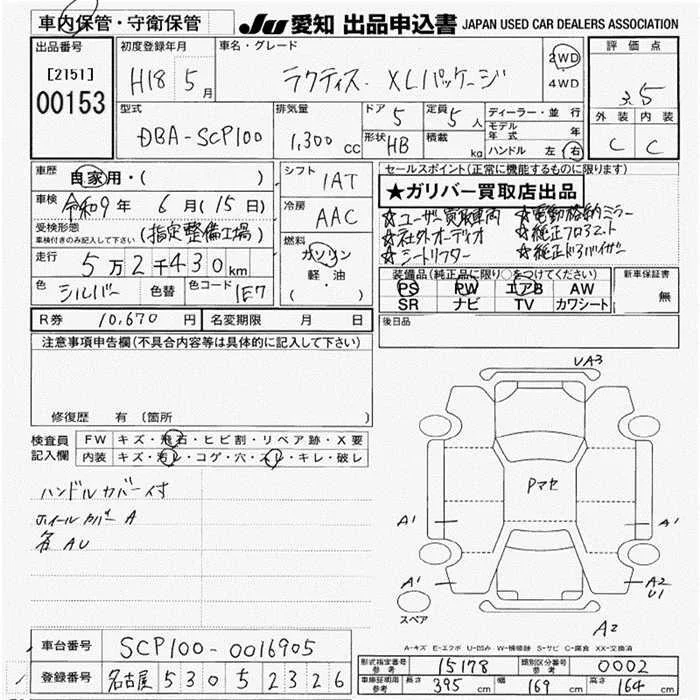 車内保管・守衛保管
JU 愛知 出品申込書 JAPAN USED CAR DEALERS ASSOCIATION
出品番号 [2151] 00153
初度登録年月 H18 5月
車名・グレード ラクティス・XLパッケージ
2WD ・ 4WD
評価点 3.5
外装 内装
C C
型式 DBA-SCP100
排気量 1,300 cc
ドア 5
形状 HB
定員 5人
積載 kg
ディーラー・並行
モデル年式 年
ハンドル 左・右
車歴 自家用・( )
車検 令和9年 6月(15日)
受検形態 車検付きのみ記入して下さい (指定整備工場)
走行 5万2千430km
色 シルバー 色替 色コード 1E7
シフト IAT
冷房 AAC
燃料 ガソリン
軽・油
( ・ )
セールスポイント(正常に機能するものに限ります)
★ガリバー買取店出品
☆ユーザー買取車両 ☆電動格納ミラー
☆社外オーディオ ☆純正フロアマット
☆シートリフター ☆純正ドアバイザー
装備品(純正品に限り○をつけてください)
PS PW エアB AW
SR ナビ TV カワシート
新車保証書 無
R券 10,670円 名変期限 月 日
後日品
注意事項申告欄(不具合内容等は具体的に記入して下さい)
修復歴 有 〔箇所
検査員記入欄
FW キズ・飛石・ヒビ割・リペア跡・X要
内装 キズ・汚レ・コゲ・穴・スレ・キレ・破レ
ハンドルカバー付
ホイールカバー A
各AU
UA3
Pマセ
A1 A1
A1 A2
U1
スペア
A2
A-キズ E-エクボ U-凹み W-補修跡 S-サビ C-腐食 XX-交換済
車台番号 SCP100-0016905
登録番号 名古屋 530 5 2326
型式指定番号 参考 15178 類別区分番号 参考 0002
車庫証明用 参考 長さ 395cm 幅 169cm 高さ 164cm